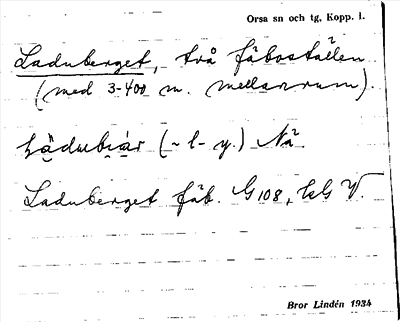 Orsa sn och tg, Kopp. l.
Laduberget, två fäboställen
(med 3-400 m. mellanrum).
Laduberget fäb. G108,
Bror Lindén 1934